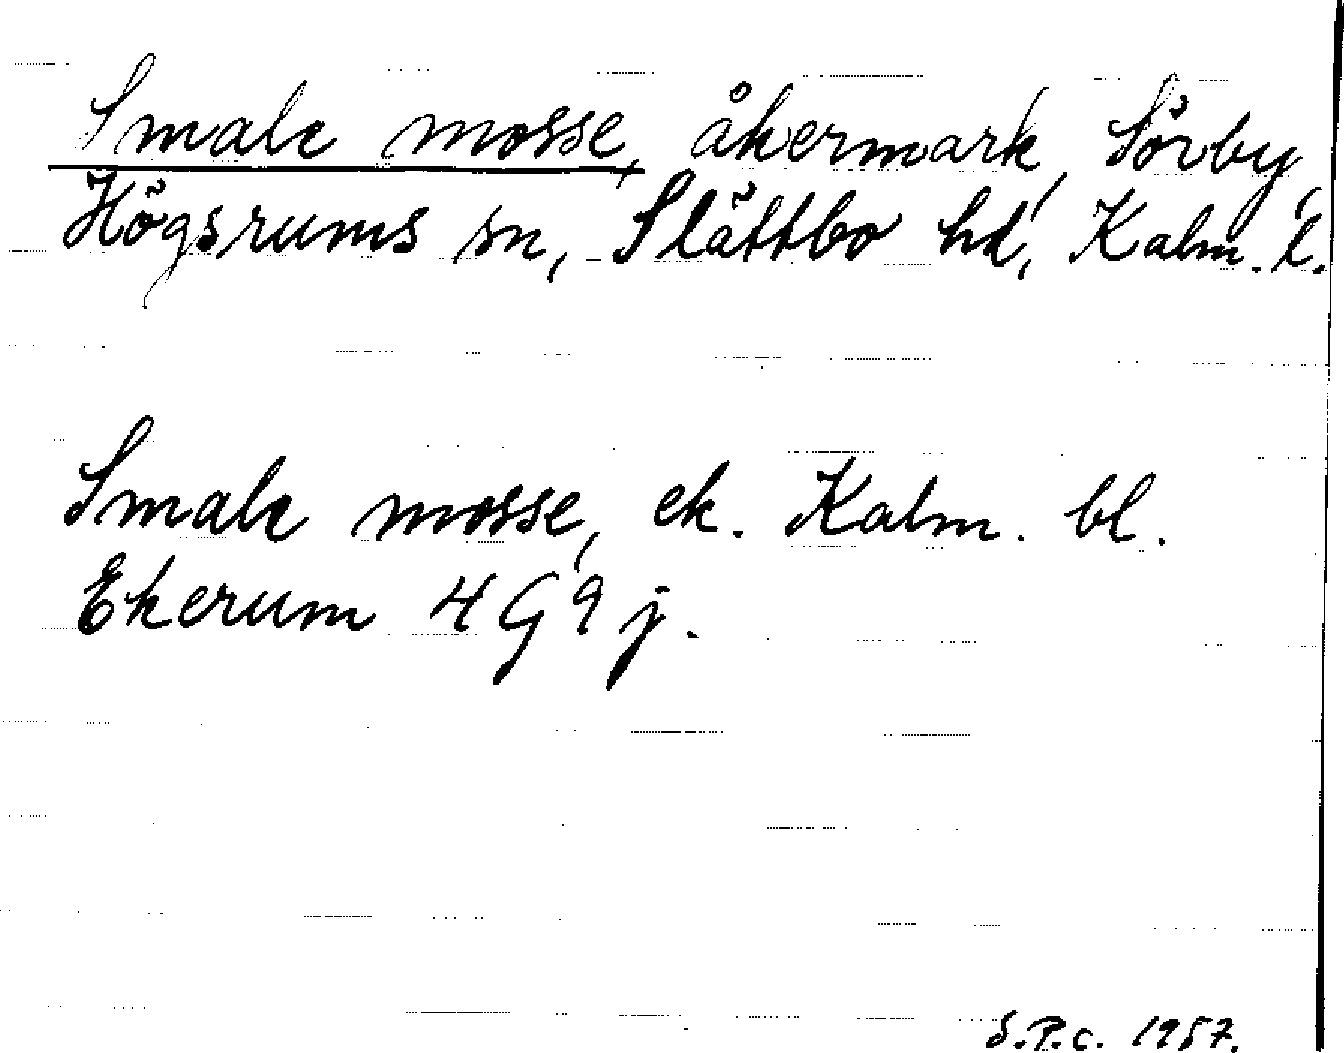 Smale mosse, åkermark, Sörby,
Högsrums sn, Slättbo hd, Kalm. l.
Smale mosse, ek. Kalm. bl.
Ekerum 4 G 9 j.
S.P.c. 1957.